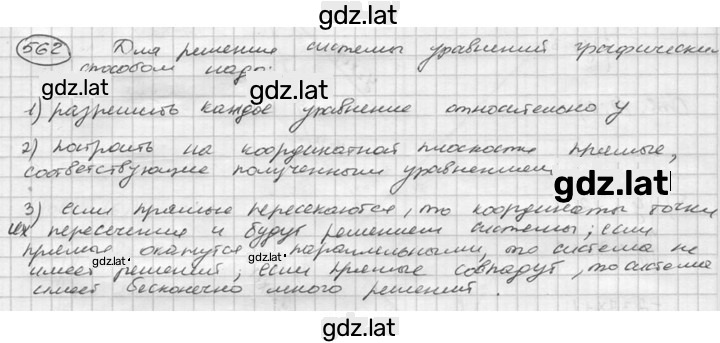 gdz.lat
562 Для решение системы уравнений графическим
способом надо:
gdz.lat gdz.lat
1) разрешить каждое уравнение относительно y
2) построить на координатной плоскости прямые,
соответствующие полученным уравнениям
gdz.lat
3) если прямые пересекаются, то координаты точки
их пересечения и будут решением системы; если
прямые окажутся параллельными, то система не
gdz.lat gdz.lat
имеет решений; если прямые совпадут, то система
имеет бесконечно много решений.
gdz.lat